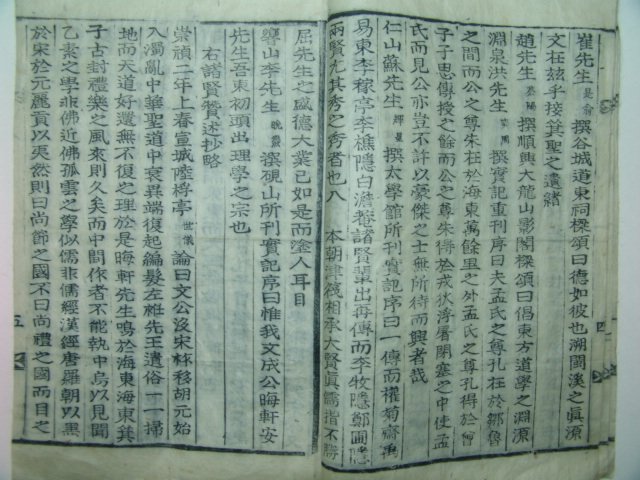 崔先生 是翁 撰谷城道東祠樑頌曰德如彼也溯閩溪之眞源
文在玆乎接箕聖之遺緖
趙先生 撰順興大龍山影閣樑頌曰倡東方道學之淵源
淵泉洪先生 奭周 撰實記重刊序曰夫孟氏之尊孔在於鄒魯
之間而公之尊朱在於海東萬餘里之外孟氏之尊孔得於曾
子子思傳授之餘而公之尊朱得於戎狄浮屠閉塞之中使孟
氏而見公亦豈不許以豪傑之士無所待而興者哉
仁山蘇先生 輝冕 撰太學館所刊實記序曰一傳而權菊齋禹
易東李稼亭李樵隱白澹菴諸賢輩出再傳而李牧隱鄭圃隱
兩賢尤其秀之秀者也入 本朝津筏相承大賢眞儒指不勝
屈先生之盛德大業已如是而塗人耳目
響山李先生 晩燾 撰硯山所刊實記序曰惟我文成公晦軒安
先生吾東初頭出理學之宗也
右諸賢贊述抄略
崇禎二年上春宣城陸將亭 世儀 論曰文公沒宋祚移胡元始
入濁亂中華聖道中衰異端復起編髮左袵先王遺俗一一掃
地而天道好還無不復之理於是晦軒先生鳴於海東海東箕
子古封禮樂之風來則久矣而中間作者不能執中烏以見聞
乙素之學非佛近佛孤雲之學似儒非儒經漢經唐羅朝以黑
於宋於元麗貢以夷然則曰尚節之國不曰尚禮之國而目之
五
四